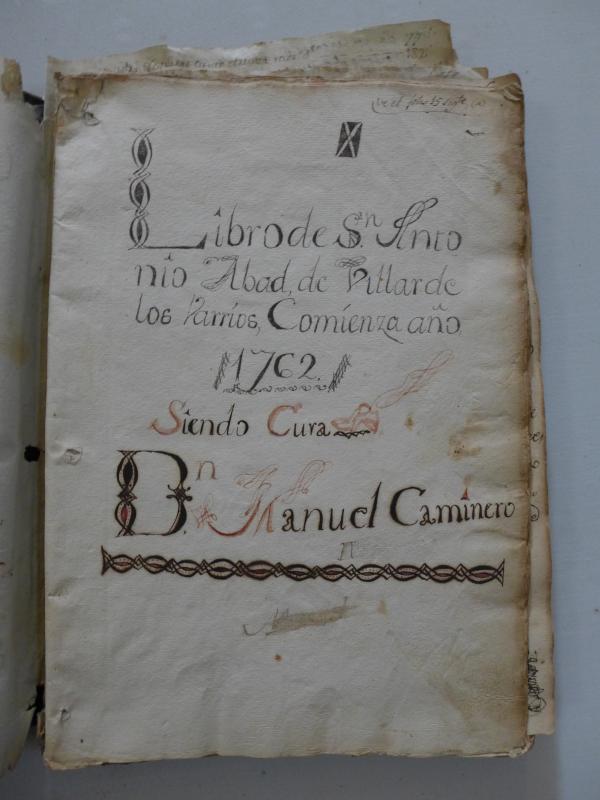 Libro de S.n Anto
nio Abad, de Villar de
los Varrios, Comienza año
1762.
Siendo Cura
D.n Manuel Caminero